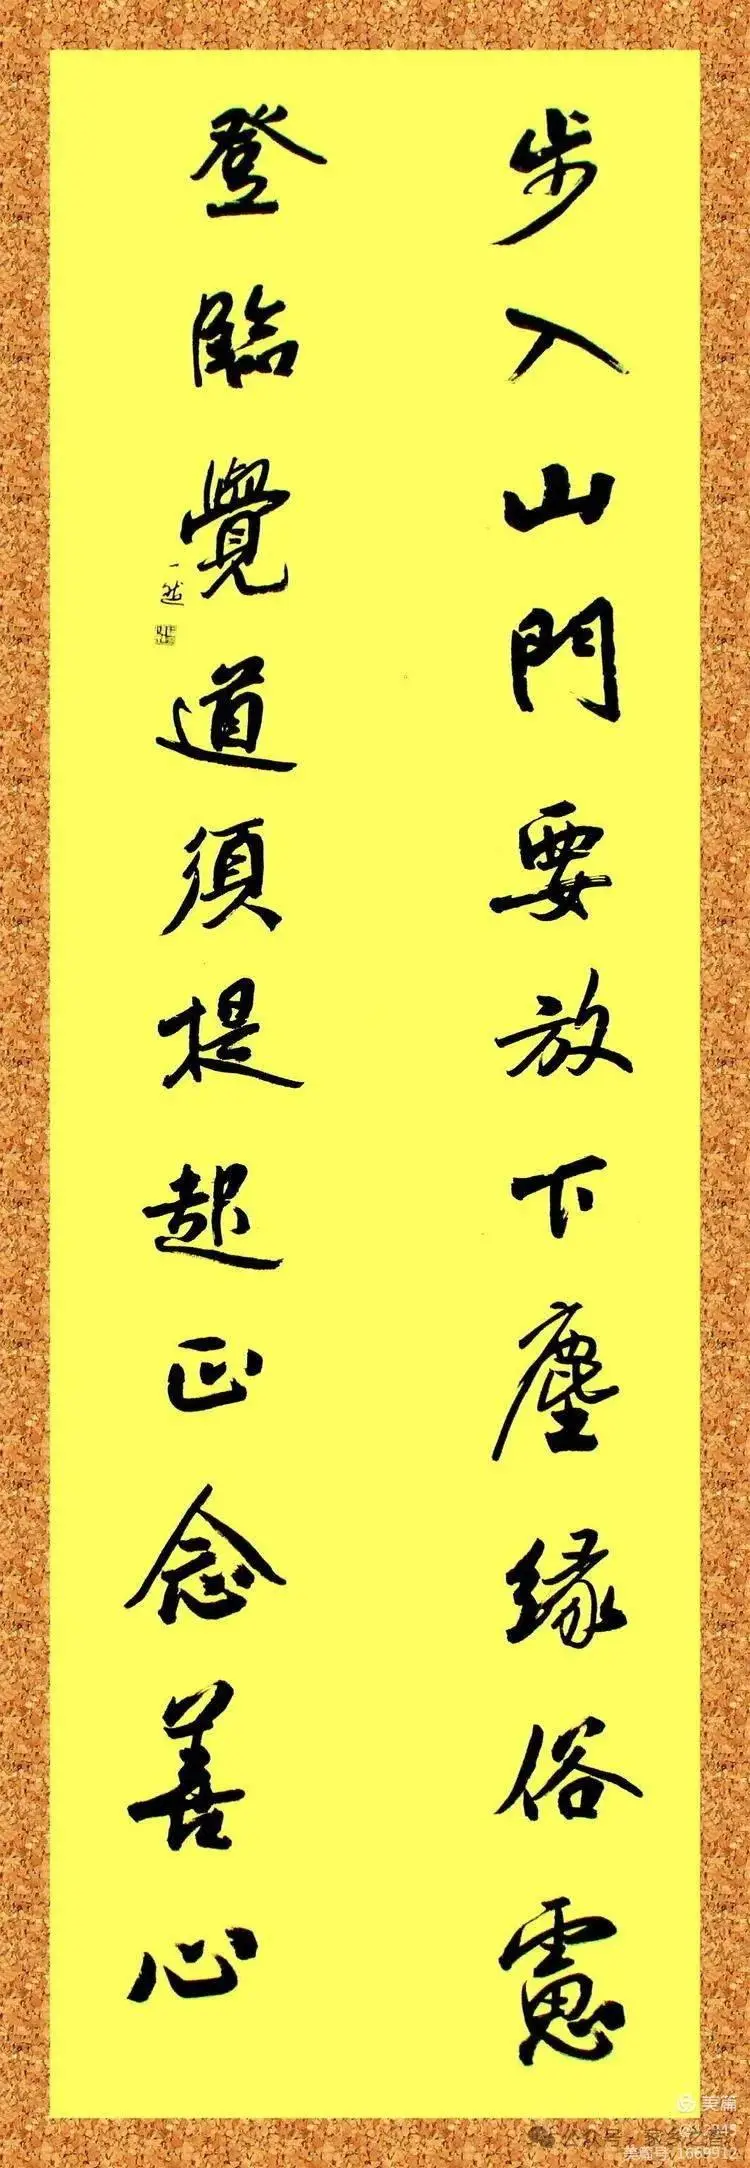 步入山門要放下塵緣俗慮
登臨覺道須提起正念善心
一然
美篇
公众号·家乡
美篇号:1669912